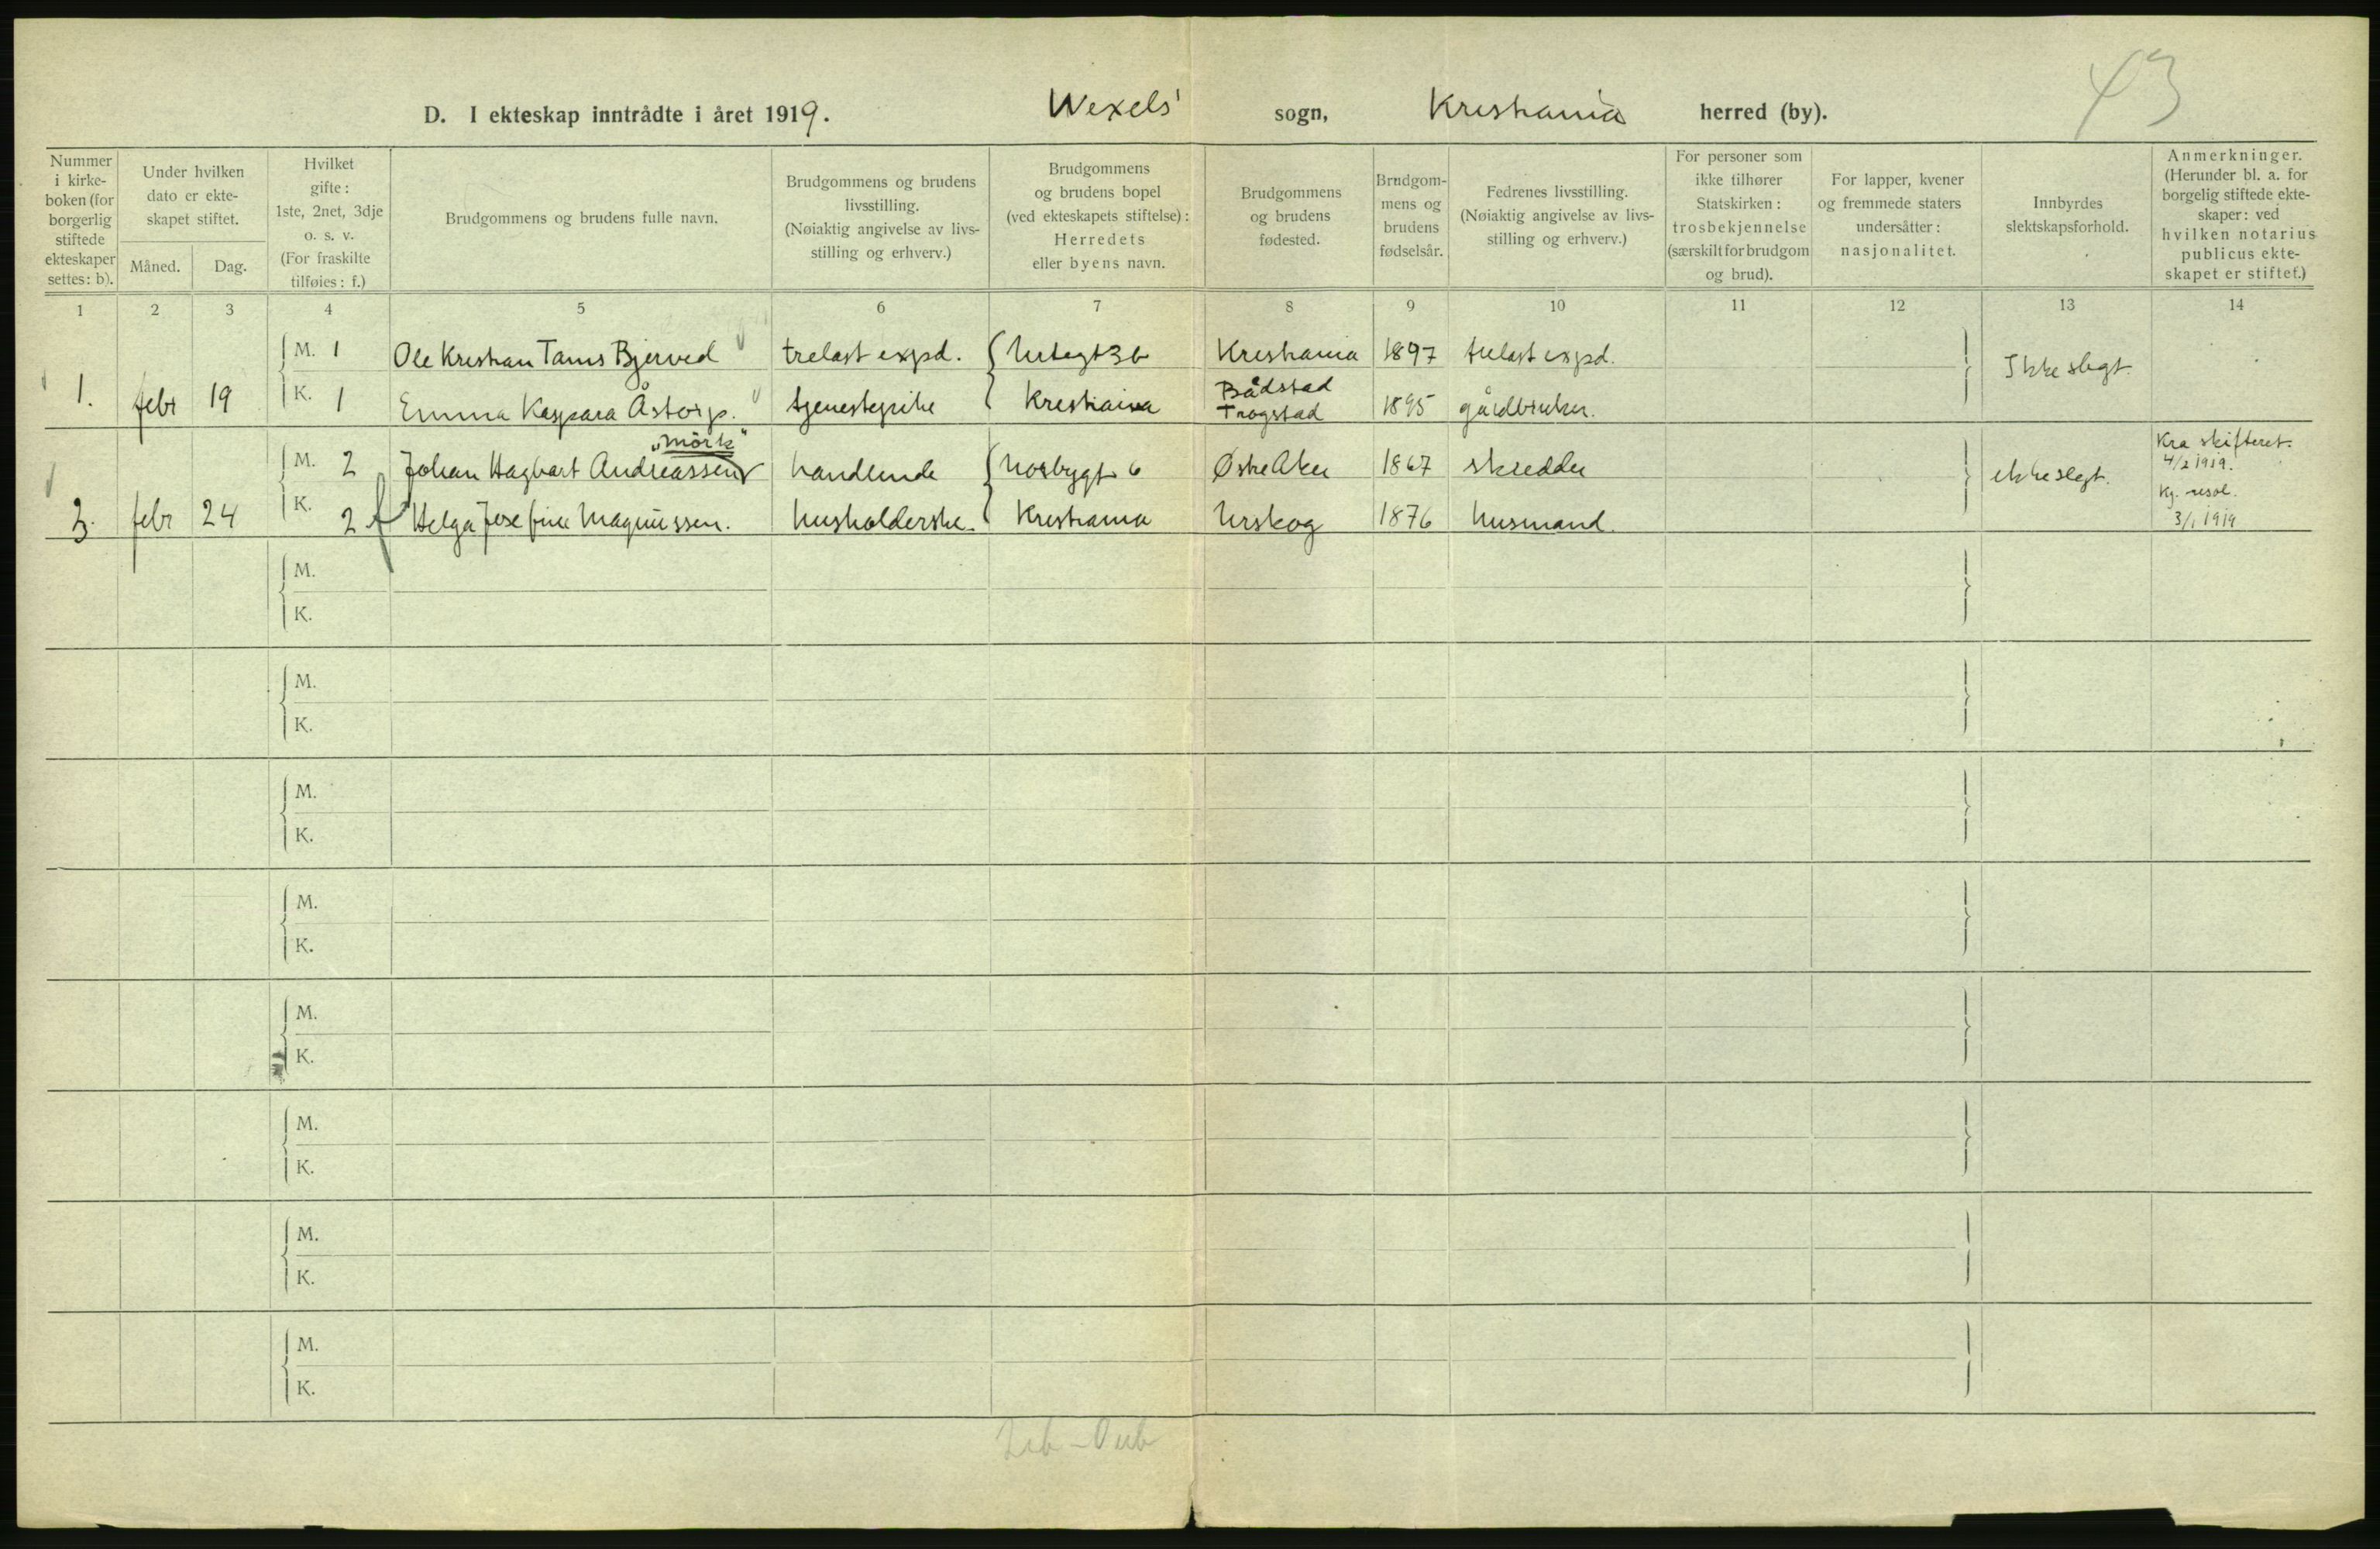 43
D. I ekteskap inntrådte i året 1919. Wexels' sogn, Kristiania herred (by).
Nummer i kirke-boken (for borgerlig stiftede ekteskaper settes: b).
Under hvilken dato er ekte-skapet stiftet.
Måned. Dag.
Hvilket gifte: 1ste, 2net, 3dje o. s. v. (For fraskilte tilføies: f.)
Brudgommens og brudens fulle navn.
Brudgommens og brudens livsstilling. (Nøiaktig angivelse av livs-stilling og erhverv.)
Brudgommens og brudens bopel (ved ekteskapets stiftelse): Herredets eller byens navn.
Brudgommens og brudens fødested.
Brudgom-mens og brudens fødselsår.
Fedrenes livsstilling. (Nøiaktig angivelse av livs-stilling og erhverv.)
For personer som ikke tilhører Statskirken: trosbekjennelse (særskilt for brudgom og brud).
For lapper, kvener og fremmede staters undersåtter: nasjonalitet.
Innbyrdes slektskapsforhold.
Anmerkninger. (Herunder bl. a. for borgelig stiftede ekte-skaper: ved hvilken notarius publicus ekte-skapet er stiftet.)
1 2 3 4 5 6 7 8 9 10 11 12 13 14
M. 1 Ole Kristian Tams Bjerved trelast expd. Urtegt 36 Kristiania 1897 trelast expd. Ikke slegt.
1. febr 19 K. 1 Emma Kaspara Åstorp. tjenestepike Kristiania Båstad Trøgstad 1895 gårdbruker.
"Mörk"
M. 2 Johan Hagbart Andreassen handlende Norbygt 6 Østre Aker 1867 skredder ikke slegt. Kra skifteret. 4/2 1919.
2. febr 24 K. 2 f Helga Josefine Magnussen. husholderske. Kristiania Urskog 1876 husmand. Kg. resol. 3/1 1919
M.
K.
M.
K.
M.
K.
M.
K.
M.
K.
M.
K.
M.
K.
M.
K.